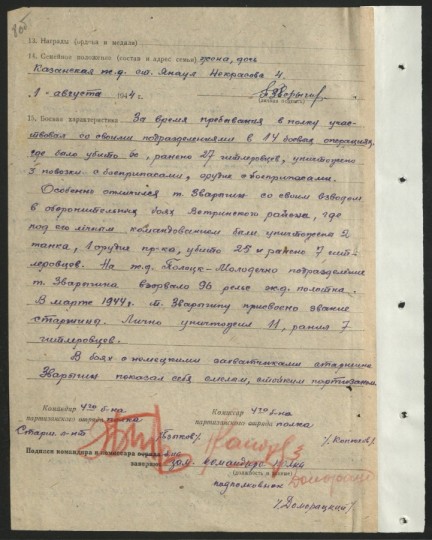 13. Награды (ордена и медали)
14. Семейное положение (состав и адрес семьи) жена, дочь
Казанская ж.д. ст. Янаул Некрасова 4.
1 - августа 1944 г.
(личная подпись)
15. Боевая характеристика За время пребывания в полку учас-
твовал со своими подразделениями в 14 боевых операциях,
где было убито 60, ранено 27 гитлеровцев, уничтожено
3 повозки с боеприпасами, орудие с боеприпасами.
Особенно отличился т. Зварыгин со своим взводом
в оборонительных боях Ветринского района, где
под его личным командованием были уничтожены 2
танка, 1 орудие пр-ка, убито 25 и ранено 7 гит-
леровцев. На ж.д. Полоцк-Молодечно подразделение
т. Зварыгина взорвало 96 рельс ж.д. полотна.
В марте 1944 г. т. Зварыгину присвоено звание
старшина. Лично уничтожил 11, ранил 7
гитлеровцев.
В боях с немецкими захватчиками старшина
Зварыгин показал себя смелым, стойким партизаном
Командир 4го б-на Комиссар 4го б-на
партизанского отряда полка партизанского отряда полка
Старш. л-нт /Коптев/
Подписи командира и комиссара
заверяю: Зам. командира
(должность и звание)
подполковник
/Доморацкий/